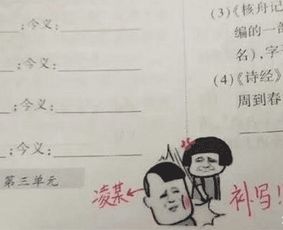 ;今义:
;今义:
;今义:
;今义:
第三单元
(3)《核舟记
编的一部
名),字子
(4)《诗经》
周到春
凌某
补写!